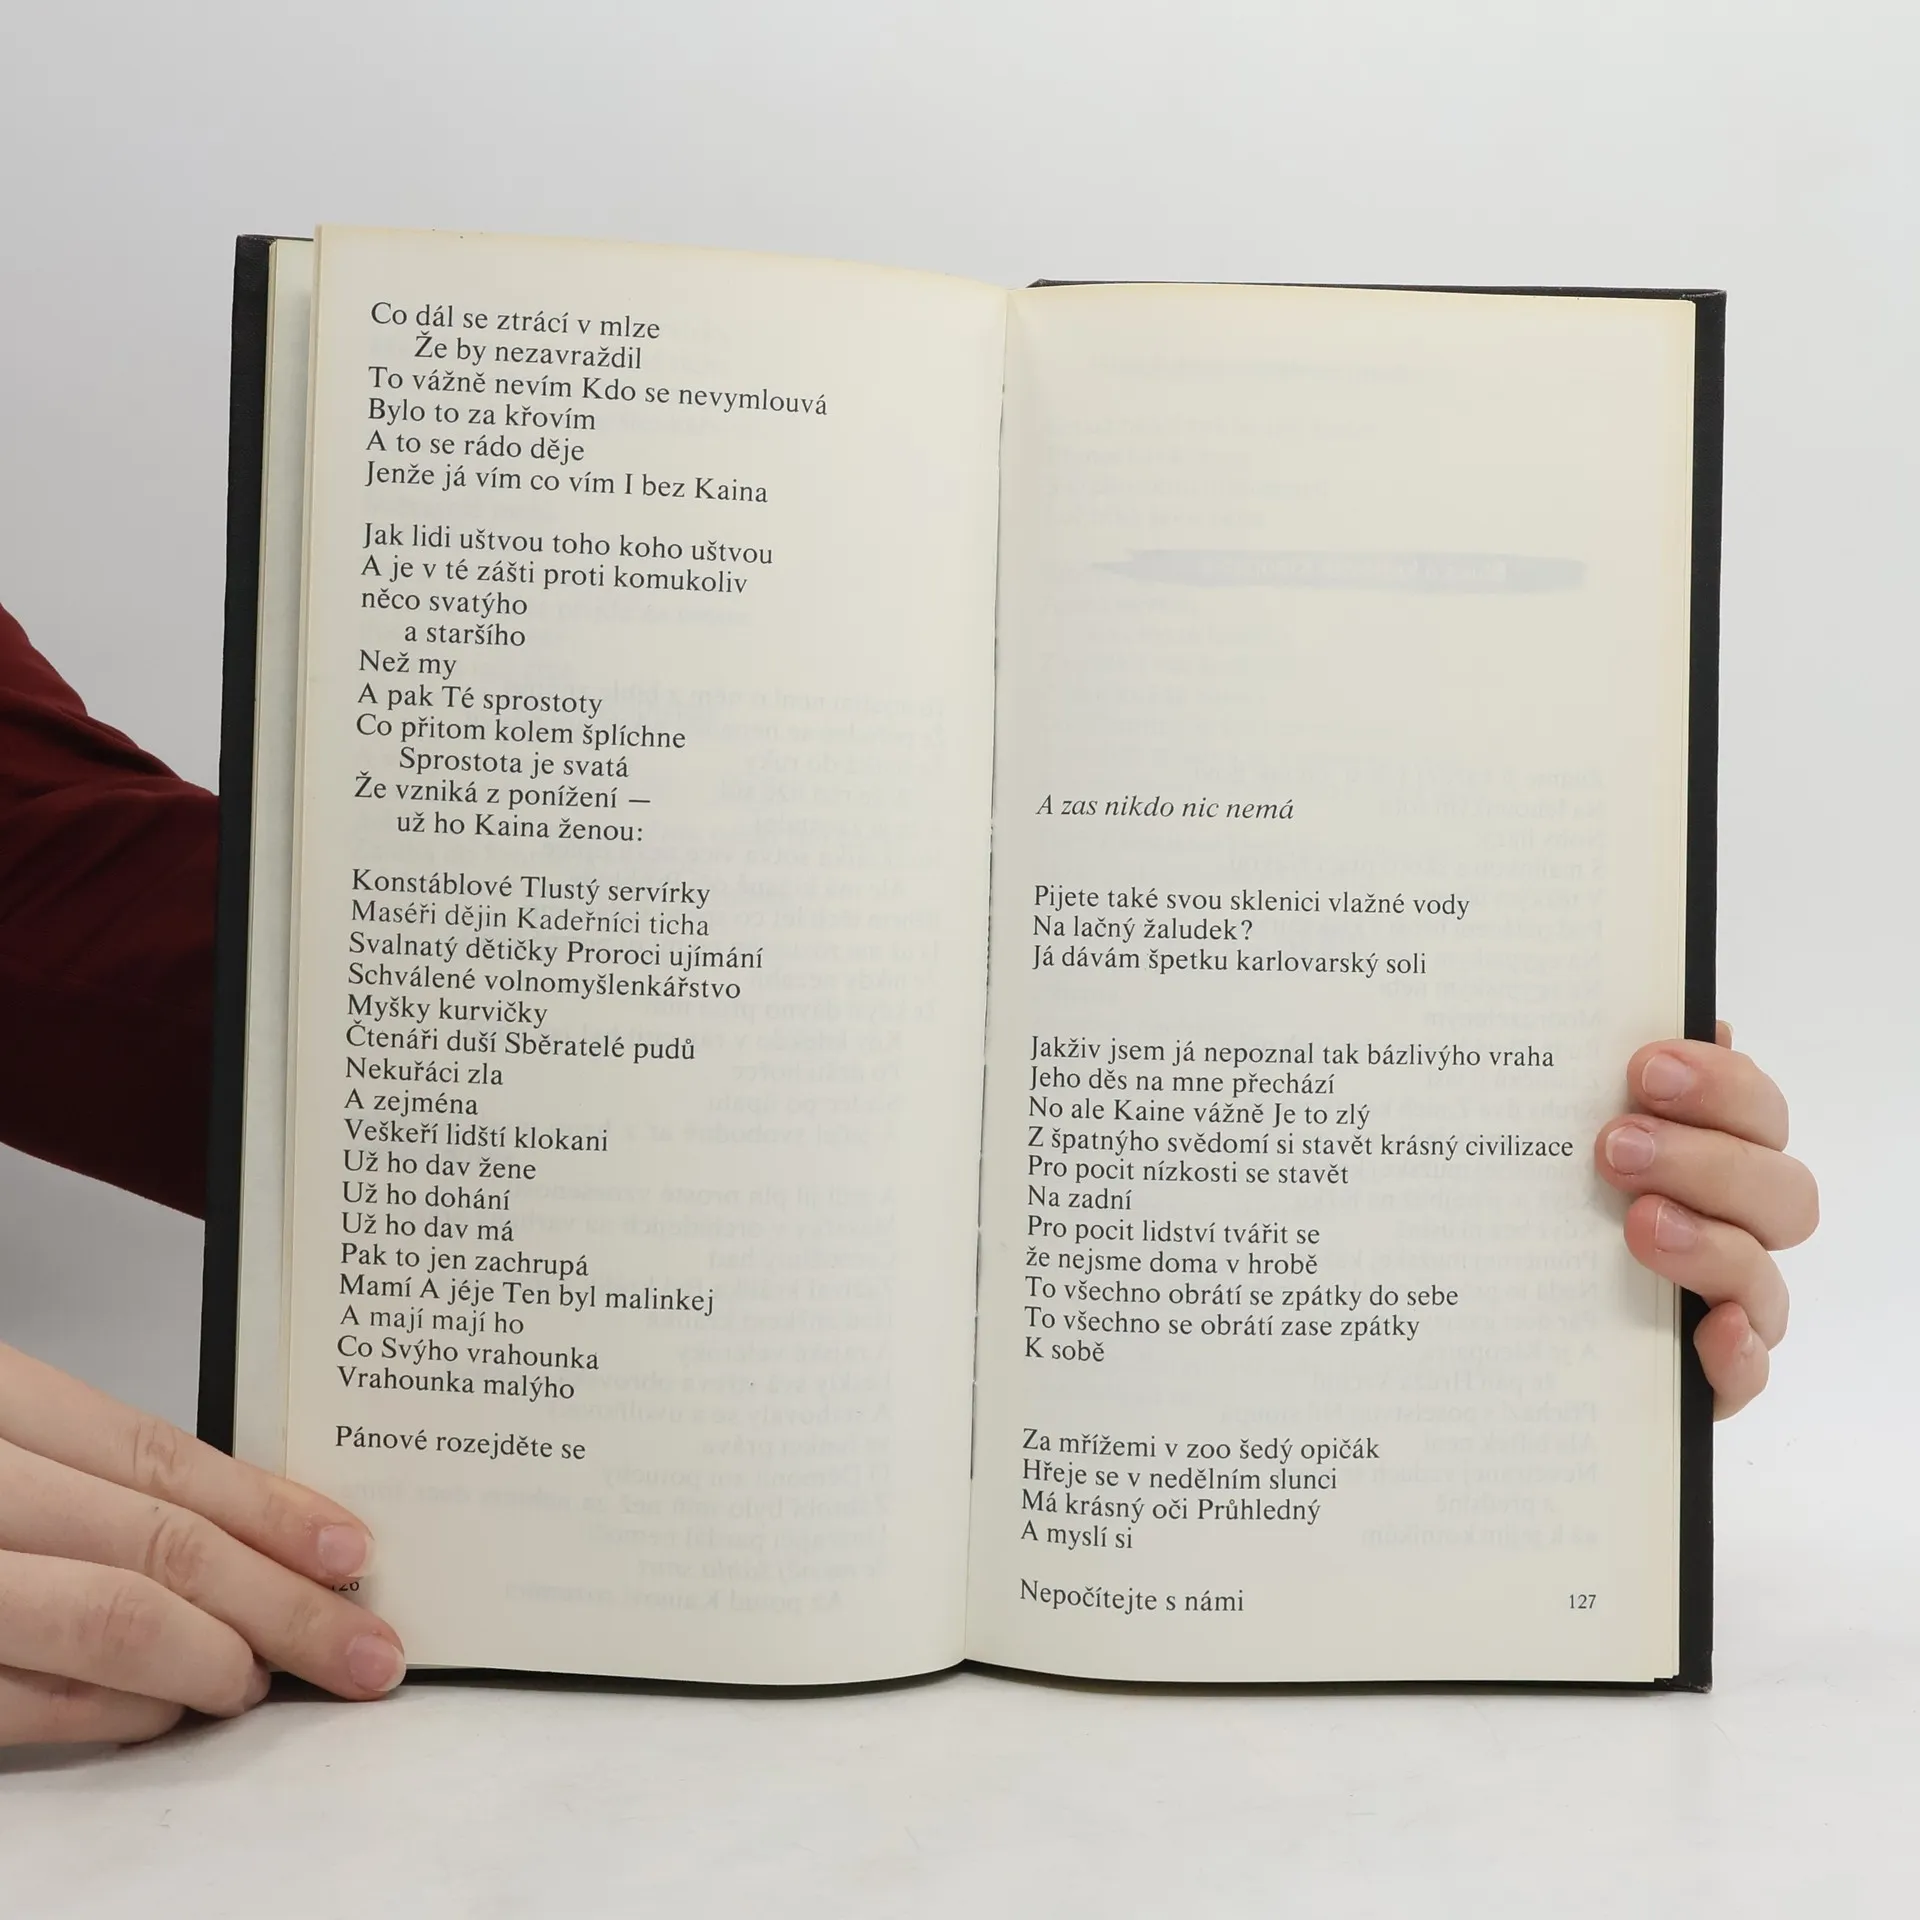 Co dál se ztrácí v mlze
Že by nezavraždil
To vážně nevím Kdo se nevymlouvá
Bylo to za křovím
A to se rádo děje
Jenže já vím co vím I bez Kaina
Jak lidi uštvou toho koho uštvou
A je v té zášti proti komukoliv
něco svatýho
a staršího
Než my
A pak Té sprostoty
Co přitom kolem šplíchne
Sprostota je svatá
Že vzniká z ponížení —
už ho Kaina ženou:
Konstáblové Tlustý servírky
Maséři dějin Kadeřníci ticha
Svalnatý dětičky Proroci ujímání
Schválené volnomyšlenkářstvo
Myšky kurvičky
Čtenáři duší Sběratelé pudů
Nekuřáci zla
A zejména
Veškeří lidští klokani
Už ho dav žene
Už ho dohání
Už ho dav má
Pak to jen zachrupá
Mamí A jéje Ten byl malinkej
A mají mají ho
Co Svýho vrahounka
Vrahounka malýho
Pánové rozejděte se
A zas nikdo nic nemá
Pijete také svou sklenici vlažné vody
Na lačný žaludek?
Já dávám špetku karlovarský soli
Jakživ jsem já nepoznal tak bázlivýho vraha
Jeho děs na mne přechází
No ale Kaine vážně Je to zlý
Z špatnýho svědomí si stavět krásný civilizace
Pro pocit nízkosti se stavět
Na zadní
Pro pocit lidství tvářit se
že nejsme doma v hrobě
To všechno obrátí se zpátky do sebe
To všechno se obrátí zase zpátky
K sobě
Za mřížemi v zoo šedý opičák
Hřeje se v nedělním slunci
Má krásný oči Průhledný
A myslí si
Nepočítejte s námi
127